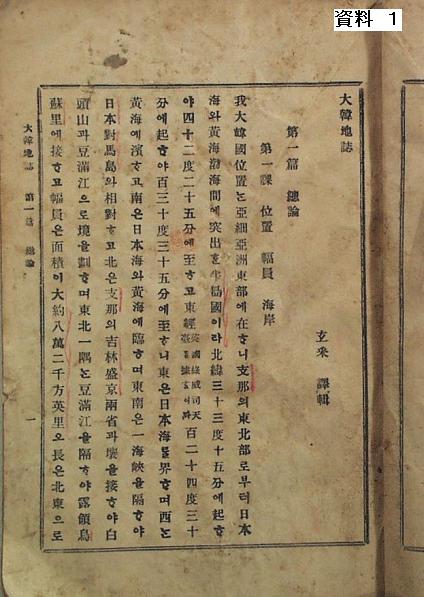 資料 1
大韓地誌
玄采 譯輯
第一篇 總論
第一課 位置 幅員 海岸
我大韓國位置는亞細亞洲東部에在ᄒᆞ니支那의東北部로부터日本
海와黃海渤海間에突出ᄒᆞᆫ半島國이라北緯三十三度十五分에起ᄒᆞ
야四十二度二十五分에至ᄒᆞ고東經百二十四度三十
分에起ᄒᆞ야百三十度三十五分에至ᄒᆞ니東은日本海를界ᄒᆞ며西는
黃海에濱ᄒᆞ고南은日本海와黃海에臨ᄒᆞ며東南은一海峽을隔ᄒᆞ야
日本對馬島와相對ᄒᆞ고北은支那의吉林盛京兩省과壤을接ᄒᆞ야白
頭山과豆滿江으로境을劃ᄒᆞ며東北一隅는豆滿江을隔ᄒᆞ야露領烏
蘇里에接ᄒᆞ고幅員은面積이大約八萬二千方英里오長은北東으로
大韓地誌 第一篇 總論 一